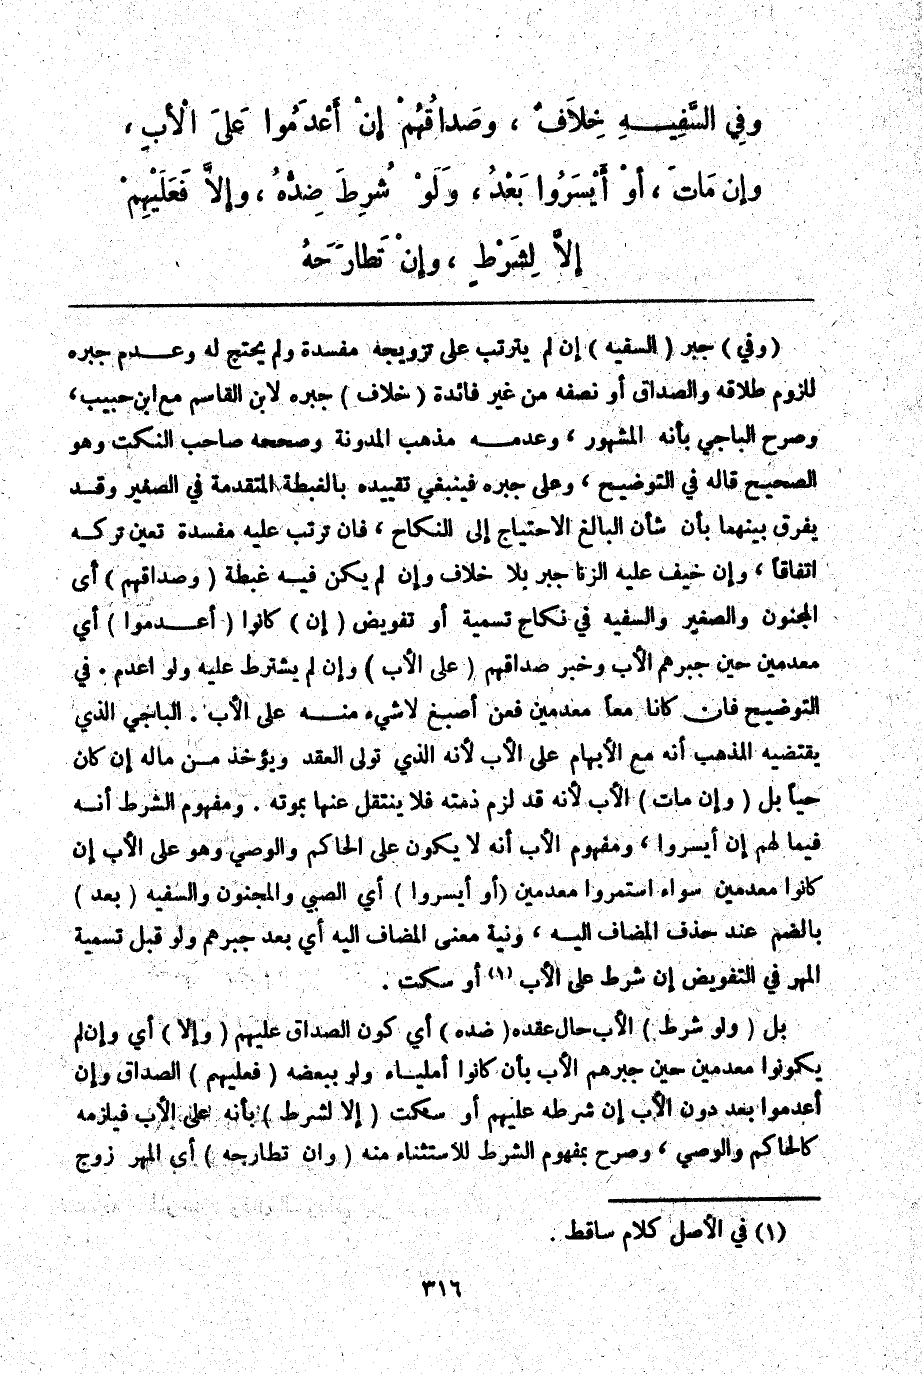 وَفِي السَّفِيهِ خِلَافٌ ، وصَداقُهُمْ إنْ أَعْدَمُوا عَلَى الْأبِ ،
وإن مَاتَ ، أوْ أَيْسَرُوا بَعْدُ ، وَلَوْ شُرِطَ ضِدُّهُ ، وإلاَّ فَعَلَيْهِمْ
إلاَّ لِشَرْطٍ ، وإنْ تَطارَحَهُ
( وفي ) جبر ( السفيه ) إن لم يترتب على تزويجه مفسدة ولم يحتج له وعدم جبره
للزوم طلاقه والصداق أو نصفه من غير فائدة ( خلاف ) جبره لابن القاسم مع ابن حبيب ،
وصرح الباجي بأنه المشهور ، وعدمه مذهب المدونة وصححه صاحب النكت وهو
الصحيح قاله في التوضيح ، وعلى جبره فينبغي تقييده بالغبطة المتقدمة في الصغير وقد
يفرق بينهما بأن شأن البالغ الاحتياج إلى النكاح ، فان ترتب عليه مفسدة تعين تركه
اتفاقاً ، وإن خيف عليه الزنا جبر بلا خلاف وإن لم يكن فيه غبطة ( وصداقهم ) أى
المجنون والصغير والسفيه في نكاح تسمية أو تفويض ( إن ) كانوا ( أعدموا ) أي
معدمين حين جبرهم الأب وخبر صداقهم ( على الأب ) وإن لم يشترط عليه ولو اعدم . في
التوضيح فان كانا معاً معدمين فعن أصبغ لاشيء منه على الأب . الباجي الذي
يقتضيه المذهب أنه مع الأبهام على الأب لأنه الذي تولى العقد ويؤخذ من ماله إن كان
حياً بل ( وإن مات ) الأب لأنه قد لزم ذمته فلا ينتقل عنها بموته . ومفهوم الشرط أنه
فيما لهم إن أيسروا ، ومفهوم الأب أنه لا يكون على الحاكم والوصي وهو على الأب إن
كانوا معدمين سواء استمروا معدمين (أو أيسروا ) أي الصبي والمجنون والسفيه ( بعد )
بالضم عند حذف المضاف اليه ، ونية معنى المضاف اليه أي بعد جبرهم ولو قبل تسمية
المهر في التفويض إن شرط على الأب (١) أو سكت .
بل ( ولو شرط ) الأب حال عقده( ضده ) أي كون الصداق عليهم ( وإلا ) أي وإن لم
يكونوا معدمين حين جبرهم الأب بأن كانوا أملياء ولو ببعضه ( فعليهم ) الصداق وإن
أعدموا بعد دون الأب إن شرطه عليهم أو سكت ( إلا لشرط ) بأنه على الأب فيلزمه
كالحاكم والوصي ، وصرح بمفهوم الشرط للاستثناء منه ( وان تطارحه ) أي المهر زوج
(١) في الأصل كلام ساقط .
٣١٦